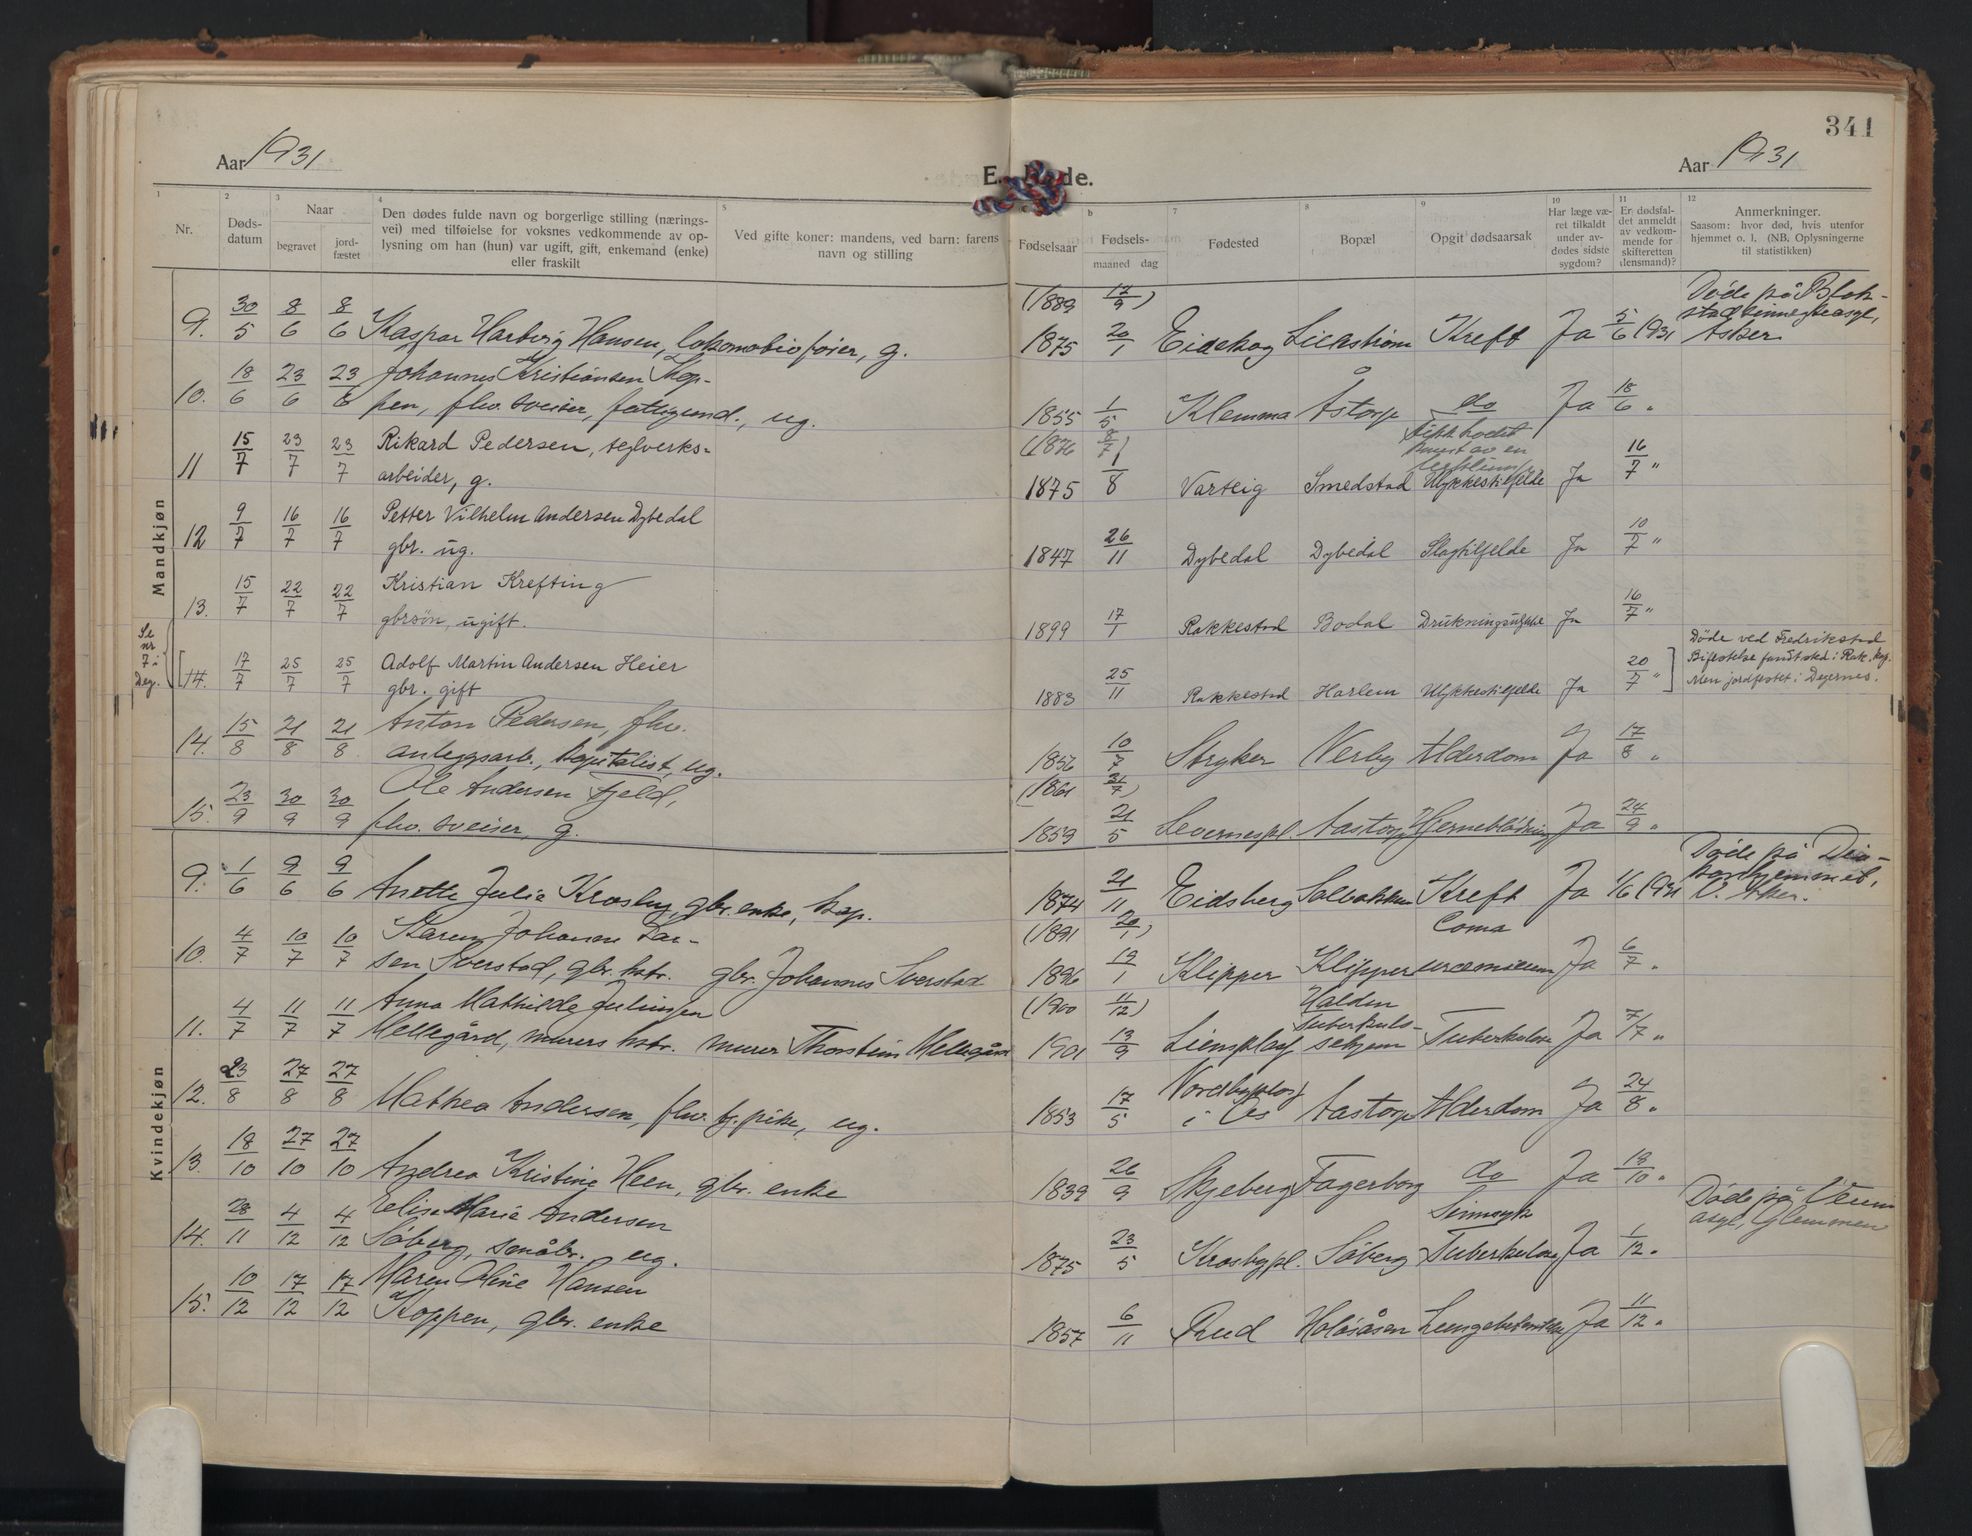 341
Aar 1931
E. Døde.
Aar 1931
1 2 3 4 5 b 7 8 9 10 11 12
Nr.
Døds-
datum
Naar
begravet
jord-
fæstet
Den dødes fulde navn og borgerlige stilling (nærings-
vei) med tilføielse for voksnes vedkommende av op-
lysning om han (hun) var ugift, gift, enkemand (enke)
eller fraskilt
Ved gifte koner: mandens, ved barn: farens
navn og stilling
Fødselsaar
Fødsels-
maaned dag
Fødested
Bopæl
Opgit dødsaarsak
Har læge væ-
ret tilkaldt
under av-
dødes sidste
sygdom?
Er dødsfal-
det anmeldt
av vedkom-
mende for
skifteretten
(lensmand)?
Anmerkninger.
Saasom: hvor død, hvis utenfor
hjemmet o. l. (NB. Oplysningerne
til statistikken)
Mandkjøn
(1889 12/9) Døde på Blak-
stad sinnssykeasyl,
9. 30/5 8/6 8/6 Kaspar Harberg Hansen, lokomobilfører, g. 1875 20/1 Eidskog Lillestrøm Kreft Ja 5/6 1931 Asker
10. 18/6 23/6 23/6 Johannes Kristiansen Kop-
pen, fhv. sveiser, fattigund., ug. 1855 1/5 Klemma Åstorp do Ja 18/6 "
(1876 8/7)
fikk hodet
knust av en
11 15/7 23/7 23/7 Rikard Pedersen, teglverks-
arbeider, g. 1875 1/8 Varteig Smedstad Ulykkestilfelde Ja 16/7 "
12 9/7 16/7 16/7 Petter Vilhelm Andersen Dybedal
gbr. ug. 1847 26/11 Dybedal Dybedal Slagtilfelde Ja 10/7 "
13. 15/7 22/7 22/7 Kristian Krefting
gbrsøn, ugift. 1899 17/1 Rakkestad Bodal Drukningsulykke Ja 16/7 "
Se
nr
7 i
Deg.
[14. 17/7 25/7 25/7 Adolf Martin Andersen Heier
gbr. gift 1883 25/11 Rakkestad Harlem Ulykkestilfelde Ja 20/7 " ]
Døde ved Fredrikstad
Bisettelse fandt sted i Rak. kap.
Men jordfestet i Degernes.
14. 15/8 21/8 21/8 Anton Pedersen, fhv.
anleggsarb., kapitalist, ug. 1856 10/7 Stryker Nerby Alderdom Ja 17/8 "
(1861 31/7)
15. 23/9 30/9 30/9 Ole Andersen Fjeld,
fhv. sveiser, g. 1859 21/5 Levernespl. Aastorp Hjerneblødning Ja 24/9 "
Kvindekjøn
Døde på Dia-
9. 1/6 9/6 9/6 Anette Julie Krosby, gbr. enke, kap. 1874 21/11 Eidsberg Solbakken Kreft Ja 1/6 1931 V. Aker.
(1891 20/1) Coma
10. 4/7 10/7 10/7 Karen Johanne Lar-
sen Sverstad, gbr. hstr. gbr. Johannes Sverstad 1896 19/1 Klipper Klipper uræmicum Ja 6/7 "
(1900 11/12) Halden
Tuberkulo-
11. 4/7 11/7 11/7 Anna Mathilde Juliussen
Mellegård, murers hstr. murer Thorstein Mellegård 1901 13/9 Liensplass sehjem Tuberkulose Ja 7/7 "
12. 23/8 27/8 27/8 Mathea Andersen, fhv. tj.pike, ug. 1853 17/5 Nordbyplass
i Os Aastorp Alderdom Ja 24/8 "
13. 18/10 27/10 27/10 Andrea Kristine Heen, gbr. enke 1839 26/9 Skjeberg Fagerborg do Ja 19/10 "
Sinnsyk
14. 28/11 4/12 4/12 Elise Marie Andersen
Søberg, småbr. ug. 1875 23/5 Krosbypl. Søberg Tuberkulose Ja 1/12 "
Døde på Veum
asyl, Glemmen
15. 10/12 17/12 17/12 Maren Oline Hansen
Koppen, gbr. enke 1857 6/11 Rud Holøsåsen Lungebetennelse Ja 11/12 "